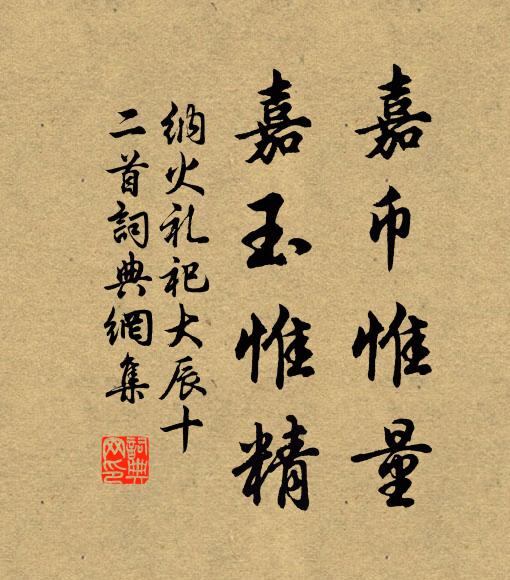 嘉币惟量
嘉玉惟精
納火礼祀大辰十
二首詞典網集
詞典
网印